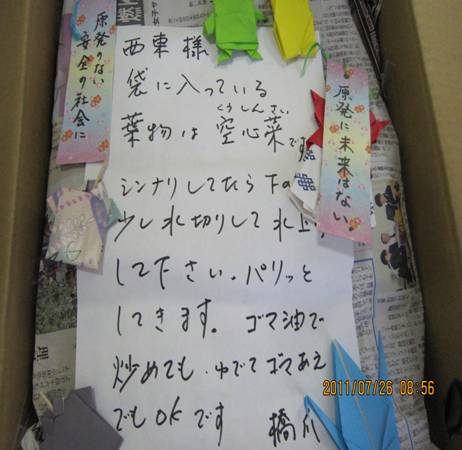 原発のない
安全の社会に
西東様
袋に入っている
くうしんさい
葉物は空心菜です。
シンナリしてたら下の
少し水切りして水上
して下さい。パリッと
してきます。ゴマ油で
炒めても、ゆでてゴマあえ
でもOKです 橋爪
原発に未来はない。
2011/07/26 08:56